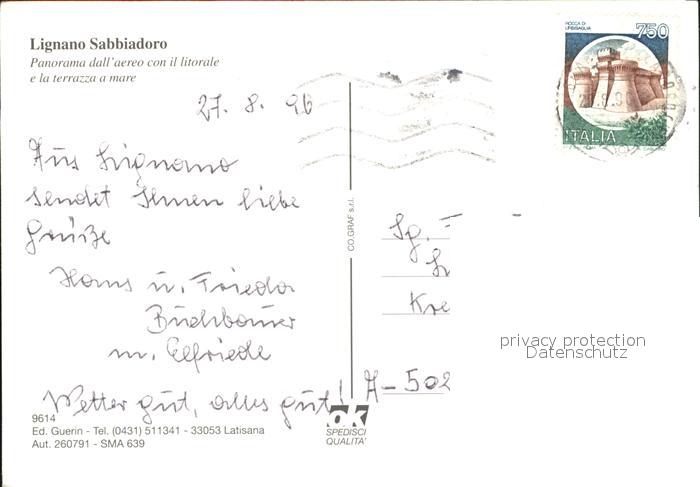 Lignano Sabbiadoro
Panorama dall'aereo con il litorale
e la terrazza a mare
ROCCA DI
URBISAGLIA
750
ITALIA
27. 8. 96
Aus Lignano
sendet Ihnen liebe
Grüße
Hans u. Frieda
Buchbauer
m. Elfriede
Wetter gut, alles gut!
CO.GRAF s.r.l.
Sg.
Kre
A-502
privacy protection
Datenschutz
9614
Ed. Guerin - Tel. (0431) 511341 - 33053 Latisana
Aut. 260791 - SMA 639
ok
SPEDISCI
QUALITA'